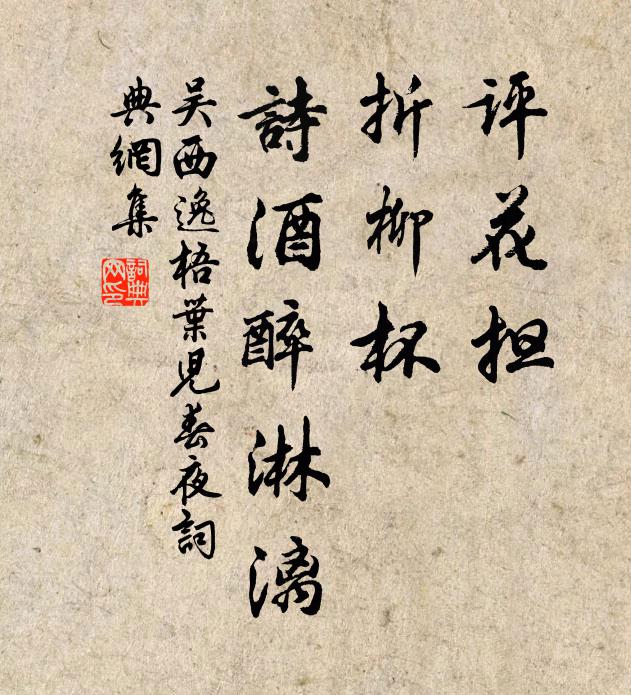 评花担
折柳杯
詩酒醉淋漓
吴西逸梧葉児春夜詞
典網集
詞典
网印